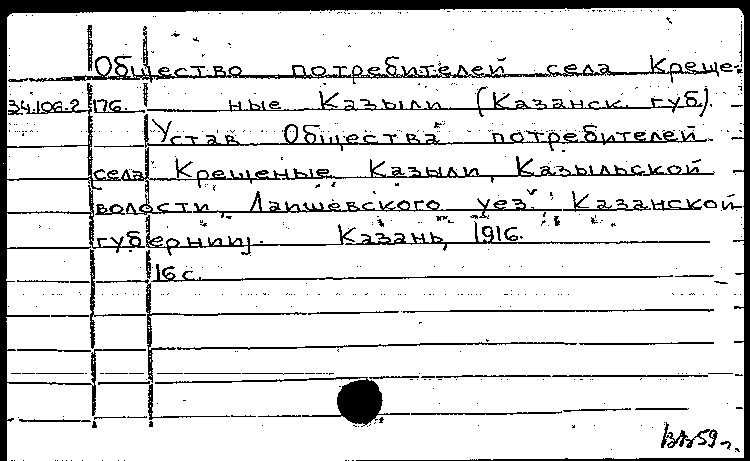 Общество потребителей села Креще-
34.106.2 176. ные Казыли (Казанск. губ.).
Устав Общества потребителей
села Крещеные Казыли, Казыльской
волости, Лаишевского уез. Казанской
губернии. Казань, 1916.
16 с.
59 г.